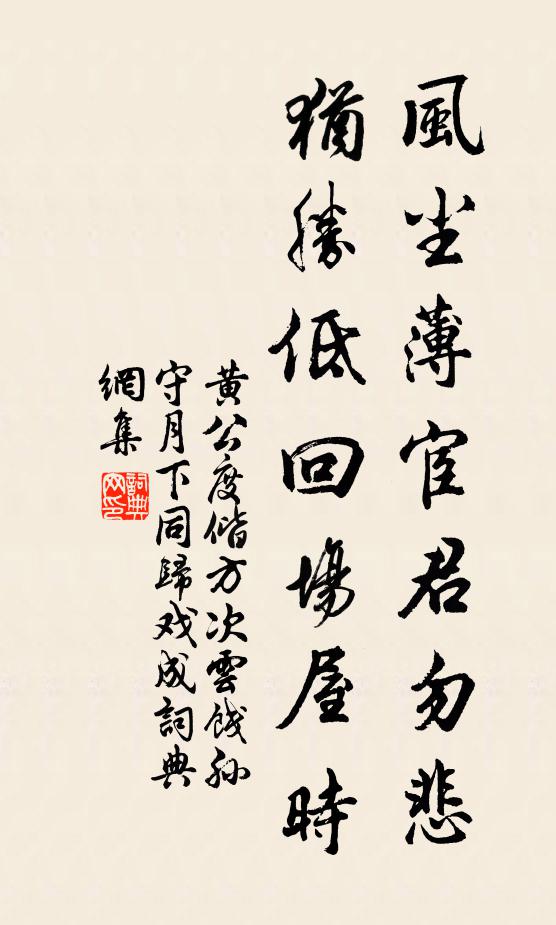 風尘薄宦君勿悲
猶勝低回場屋時
黄公度偕方次雲餞孙
守月下同歸戏成詞典
網集
詞典
网印